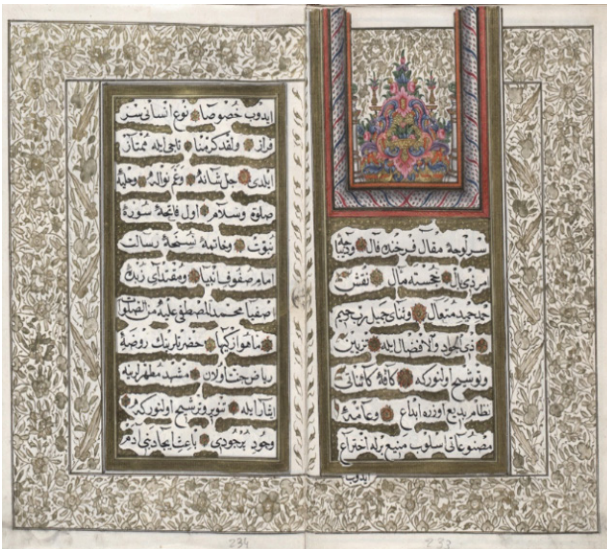 سرلوحهٔ مقال فرخنده فال ودیباجهٔ
مرذی بال خجسته مآل نقش
حمد حمید متعال وثنای جمیل رب رحیم
ذی الجود والافضال ایله تزیین
وتوشیح اولنور که کافهٔ کائناتی
نظام بدیع اوزره ابداع وعامهٔ
مصنوعاتی اسلوب منیع برله اختراع
ایدوب
233
ایدوب خصوصا نوع انسانی سر
فراز ولقد کرمنا تاجی ایله ممتاز
ایلدی جل شانه وعم نواله وحلیهٔ
صلوة وسلام اول فاتحهٔ سورهٔ
نبوت وخاتمهٔ نسخهٔ رسالت
امام صفوف انبیا ومقتدای
اصفیا محمد المصطفی علیه من الصلوات
ما هو ازکیها حضرتلرینك روضهٔ
ریاض جنات اولان مشهد مطهرلرینه
ایثار ایله تنویر وترشیح اولنور که
وجود پرجودی باعث ایجاد آدم
234